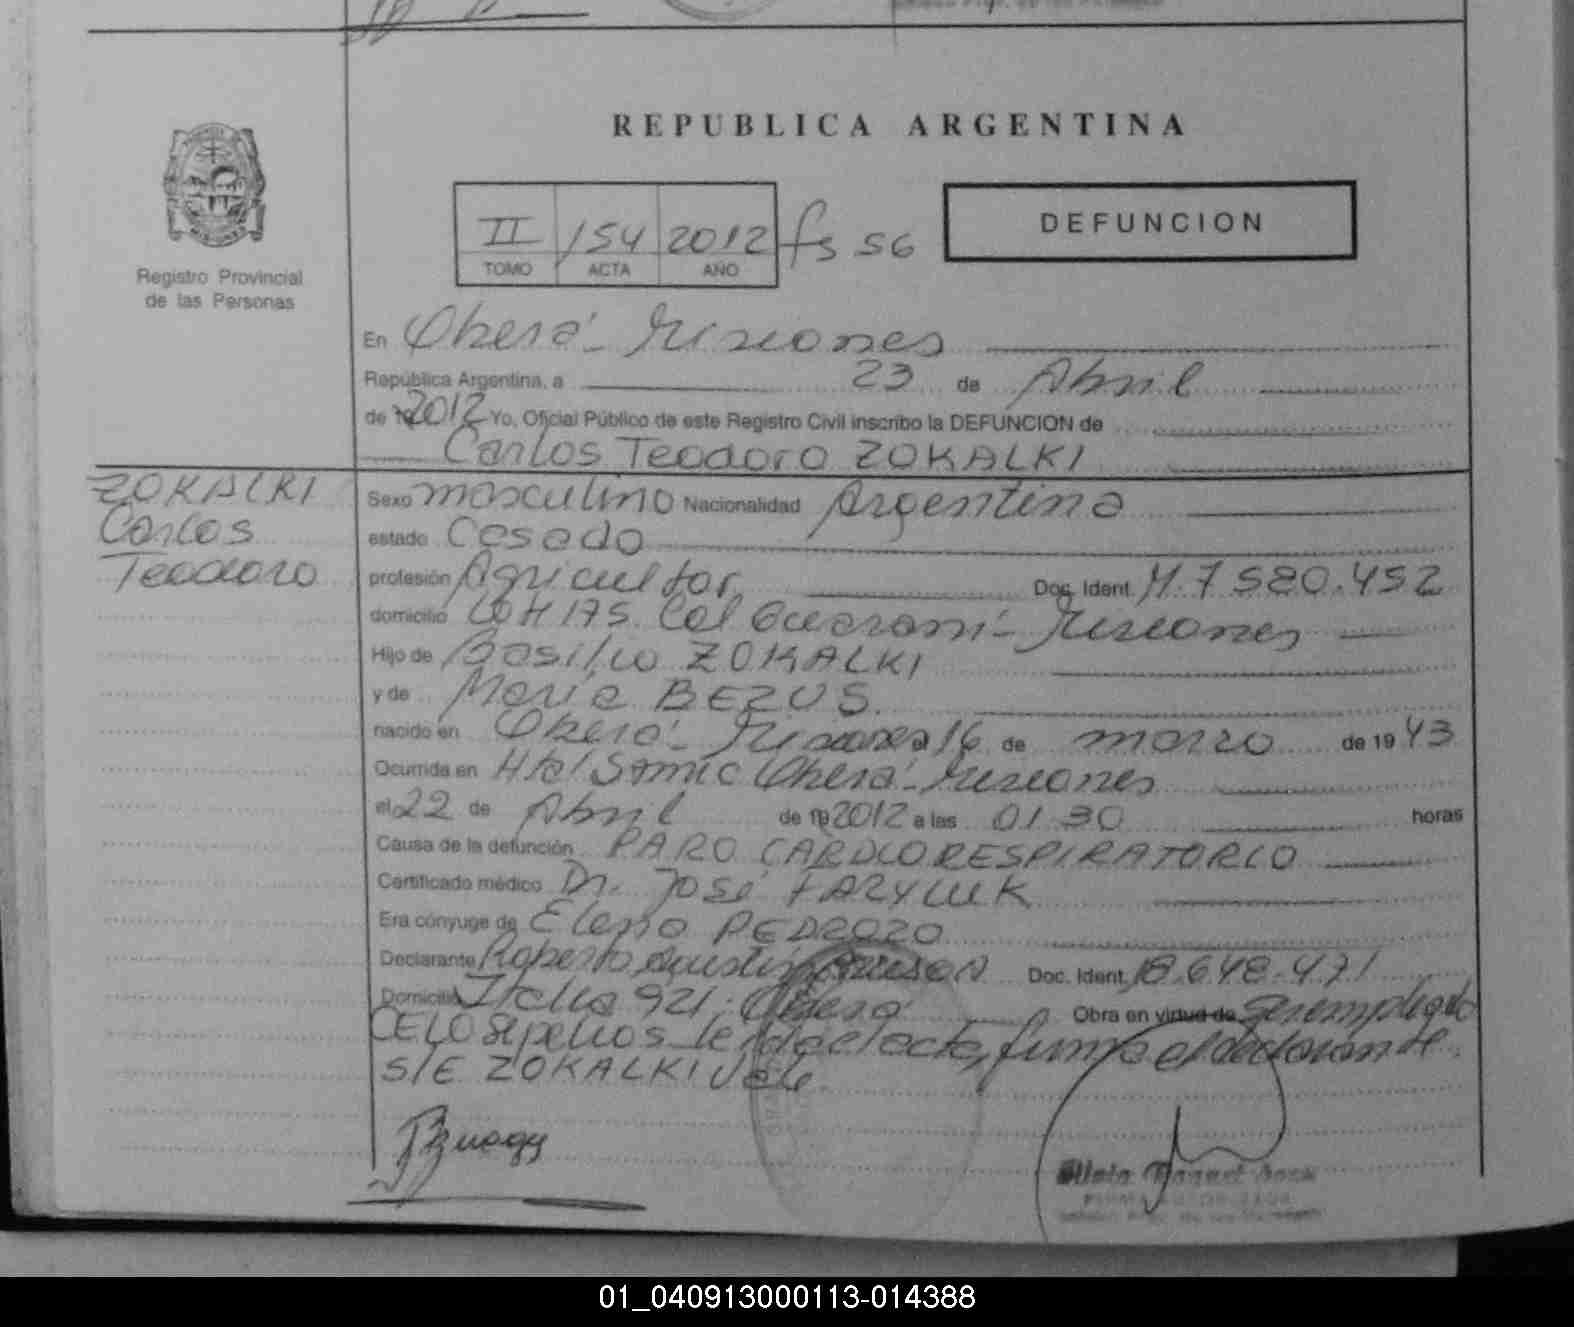 REPUBLICA ARGENTINA
II 154 2012 fs 56
TOMO ACTA AÑO
DEFUNCION
Registro Provincial
de las Personas
En Oberá - Misiones
República Argentina, a 23 de Abril
de 19 2012 Yo, Oficial Público de este Registro Civil inscribo la DEFUNCION de
Carlos Teodoro ZOKALKI
ZOKALKI
Carlos
Teodoro
Sexo masculino Nacionalidad Argentina
estado Casado
profesión Agricultor Doc. Ident. M. 7.580.452
domicilio Lote 175. Col Guaraní - Misiones
Hijo de Basilio ZOKALKI
y de Maria BEZUS.
nacido en Oberá - Misiones el 16 de marzo de 19 43
Ocurrida en Htal Samic Oberá - Misiones
el 22 de Abril de 19 2012 a las 01.30 horas
Causa de la defunción PARO CARDIORESPIRATORIO
Certificado médico Dr. José
Era cónyuge de Elena PEDROZO
Declarante Roberto Doc. Ident. 18.648.471
Domicilio Italia 921. Oberá Obra en virtud de ser empleado
CELO Sepelios Leida el acta, firma el declarante
S/E ZOKALKI Vale
01_040913000113-014388